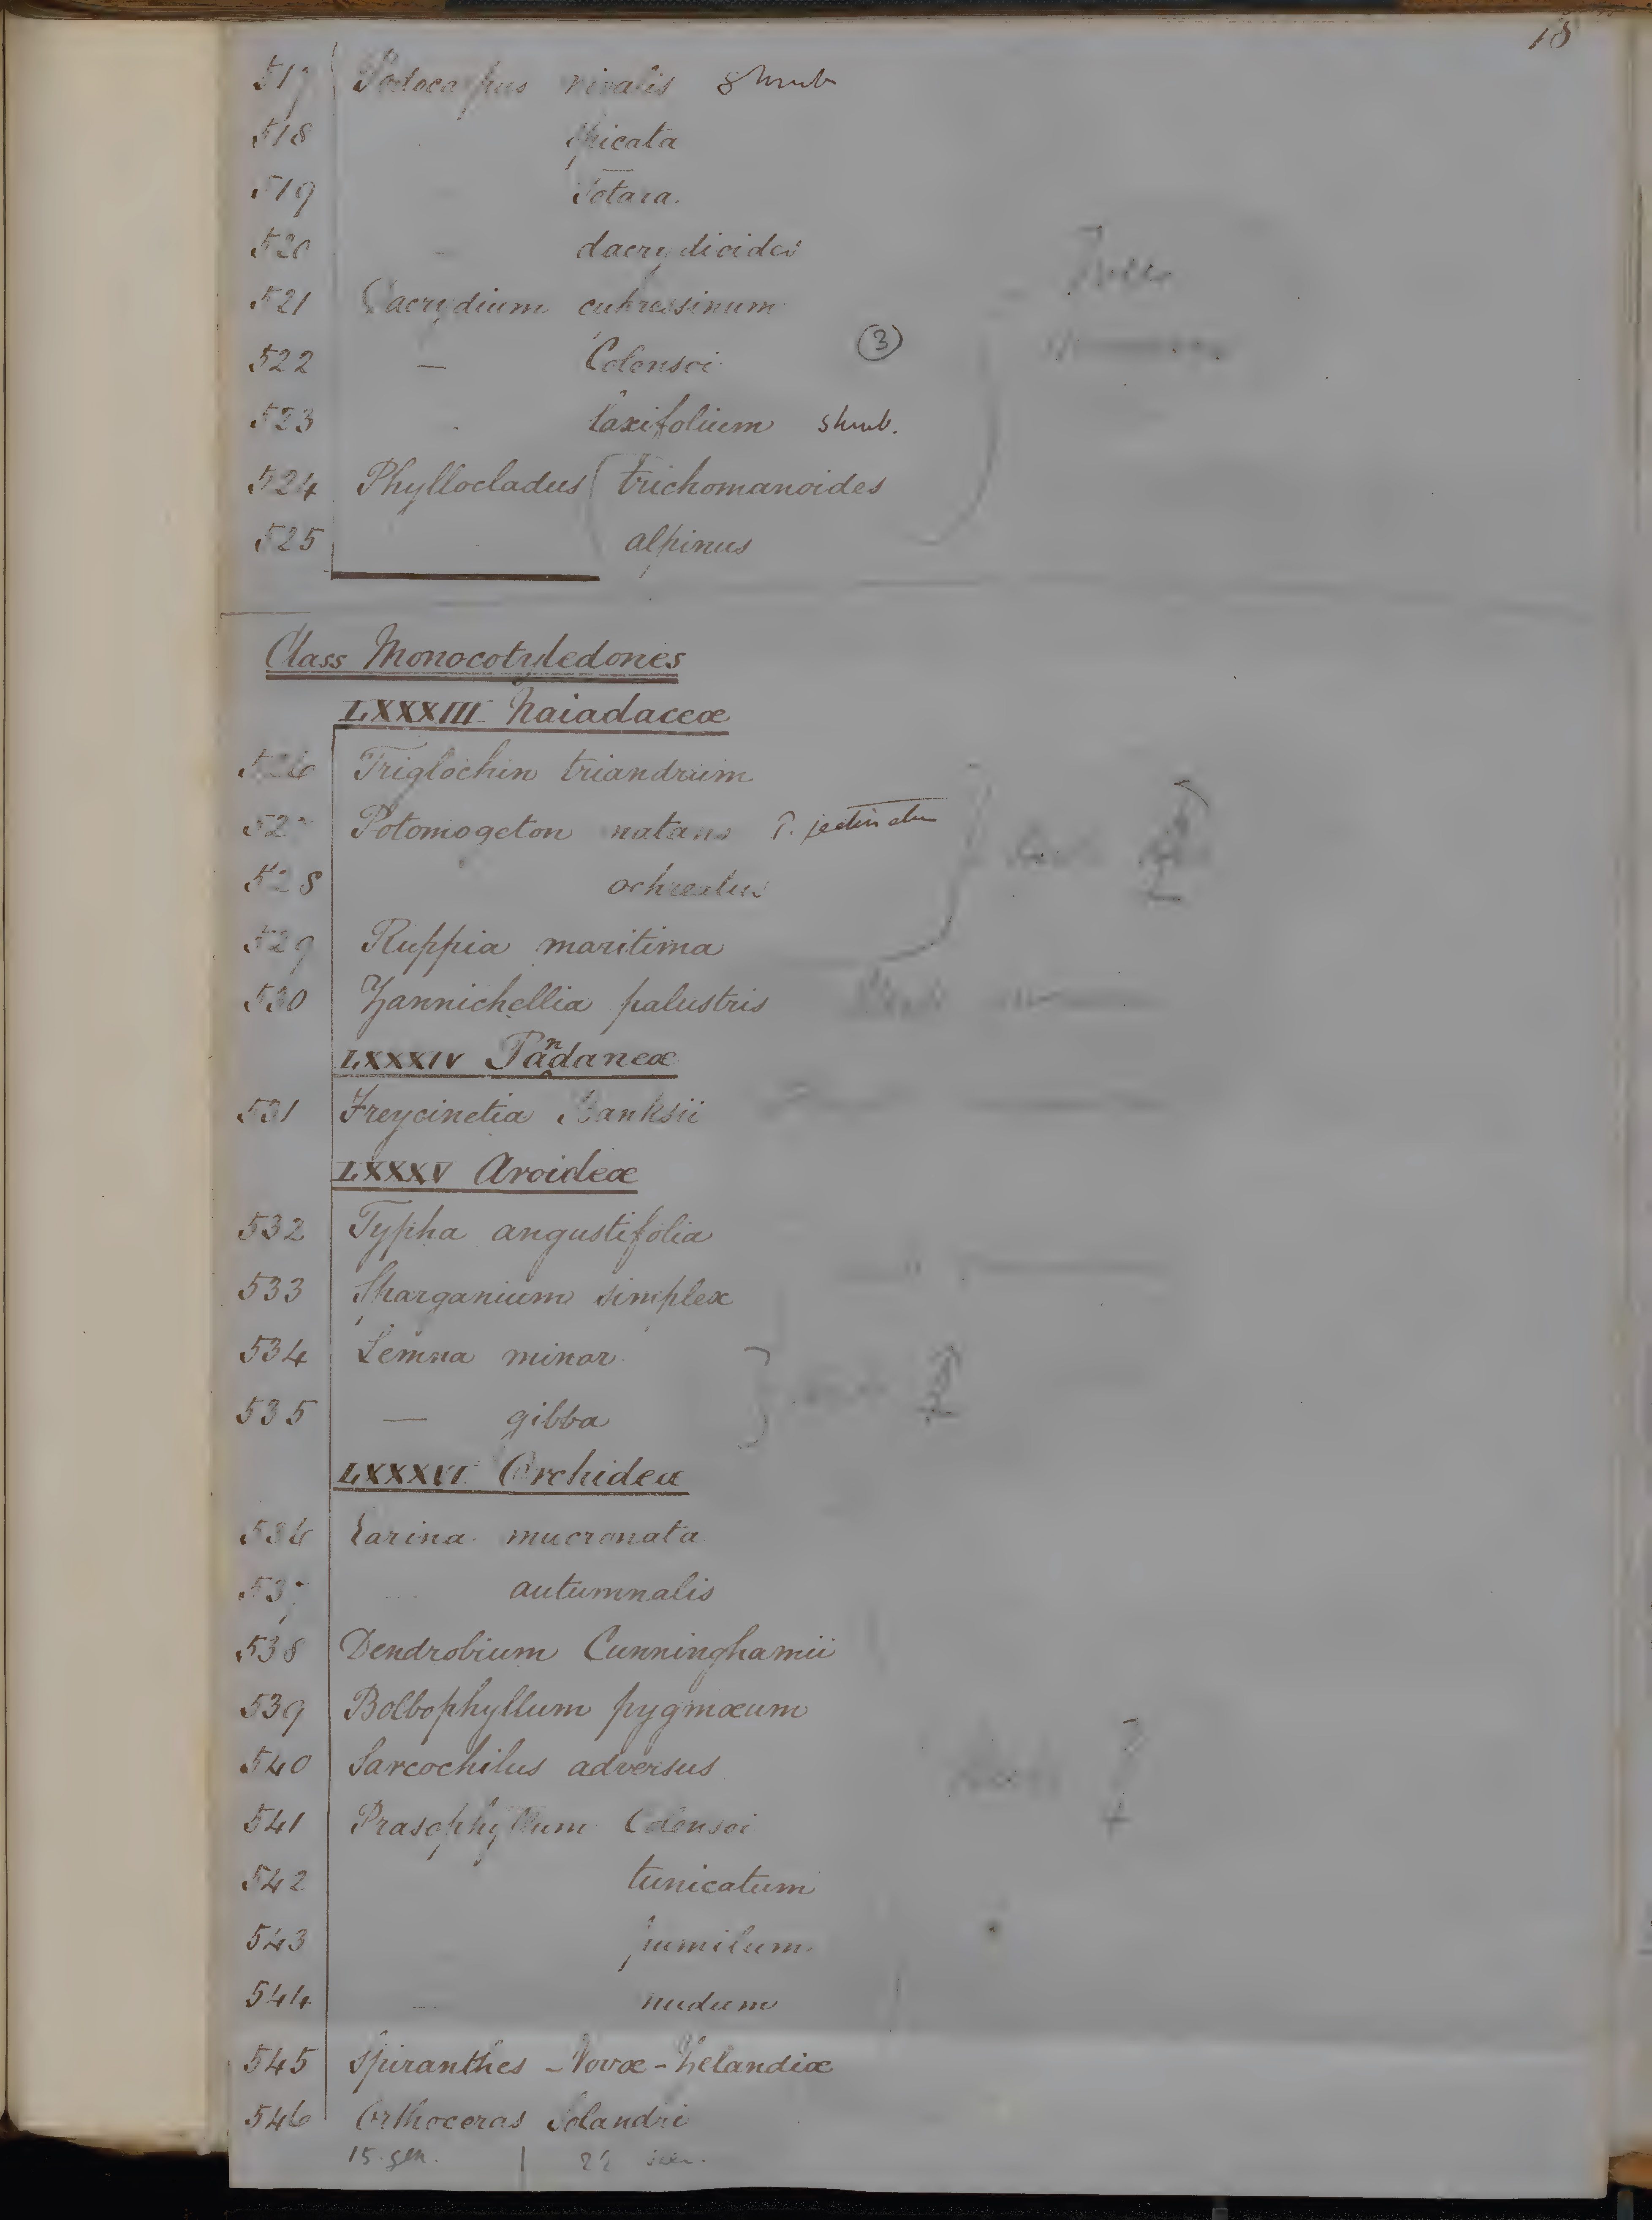 18
517 Podocarpus nivalis shrub
518 spicata
519 Totara.
520 — dacrydioides
521 Dacrydium cupressinum
522 — Colensoi
③
523 laxifolium shrub.
524 Phyllocladus trichomanoides
525 alpinus
Trees
Class Monocotyledones
LXXXIII Naiadaceæ
526 Triglochin triandrum
527 Potomogeton natans P. pectinatu
528 ochreatus
529 Ruppia maritima
530 Zannichellia palustris
LXXXIV Pandaneæ
531 Freycinetia Banksii
LXXXV Aroideæ
532 Typha angustifolia
533 Sparganium simplex
534 Lemna minor
535 — gibba
LXXXVI Orchideæ
536 Earina mucronata
537 autumnalis
538 Dendrobium Cunninghamii
539 Bolbophyllum pygmæum
540 Sarcochilus adversus
541 Prasophyllum Colensoi
542 tunicatum
543 pumilum
544 — nudum
545 Spiranthes Novæ-Zelandiæ
546 Orthoceras Solandri
15 gen. | 22